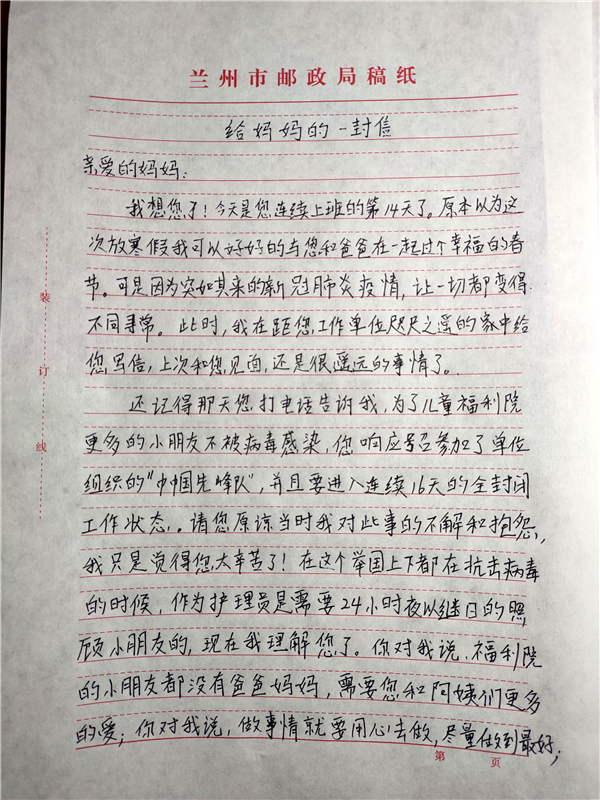 兰州市邮政局稿纸
给妈妈的一封信
亲爱的妈妈：
我想您了！今天是您连续上班的第14天了。原本以为这
次放寒假我可以好好的与您和爸爸在一起过个幸福的春
节。可是因为突如其来的新冠肺炎疫情，让一切都变得
不同寻常。此时，我在距您工作单位咫尺之遥的家中给
您写信，上次和您见面，还是很遥远的事情了。
还记得那天您打电话告诉我，为了儿童福利院
更多的小朋友不被病毒感染，您响应号召参加了单位
组织的“巾帼先峰队”，并且要进入连续16天的全封闭
工作状态。请您原谅当时我对此事的不解和抱怨，
我只是觉得您太辛苦了！在这个举国上下都在抗击病毒
的时候，作为护理员是需要24小时夜以继日的照
顾小朋友的，现在我理解您了。你对我说，福利院
的小朋友都没有爸爸妈妈，需要您和阿姨们更多
的爱；你对我说，做事情就要用心去做，尽量做到最好；
装
订
线
第 页